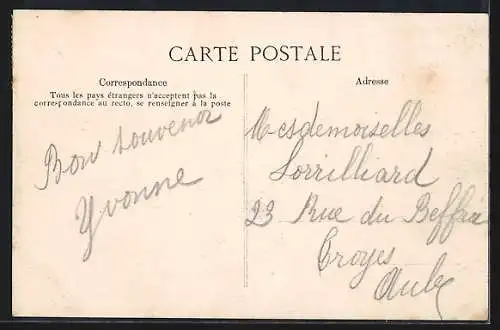 CARTE POSTALE
Correspondance
Tous les pays étrangers n'acceptent pas la
correspondance au recto, se renseigner à la poste
Bon souvenir
Yvonne
Adresse
Mesdemoiselles
Lorrilliard
23 Rue du Beffroi
Troyes
Aube